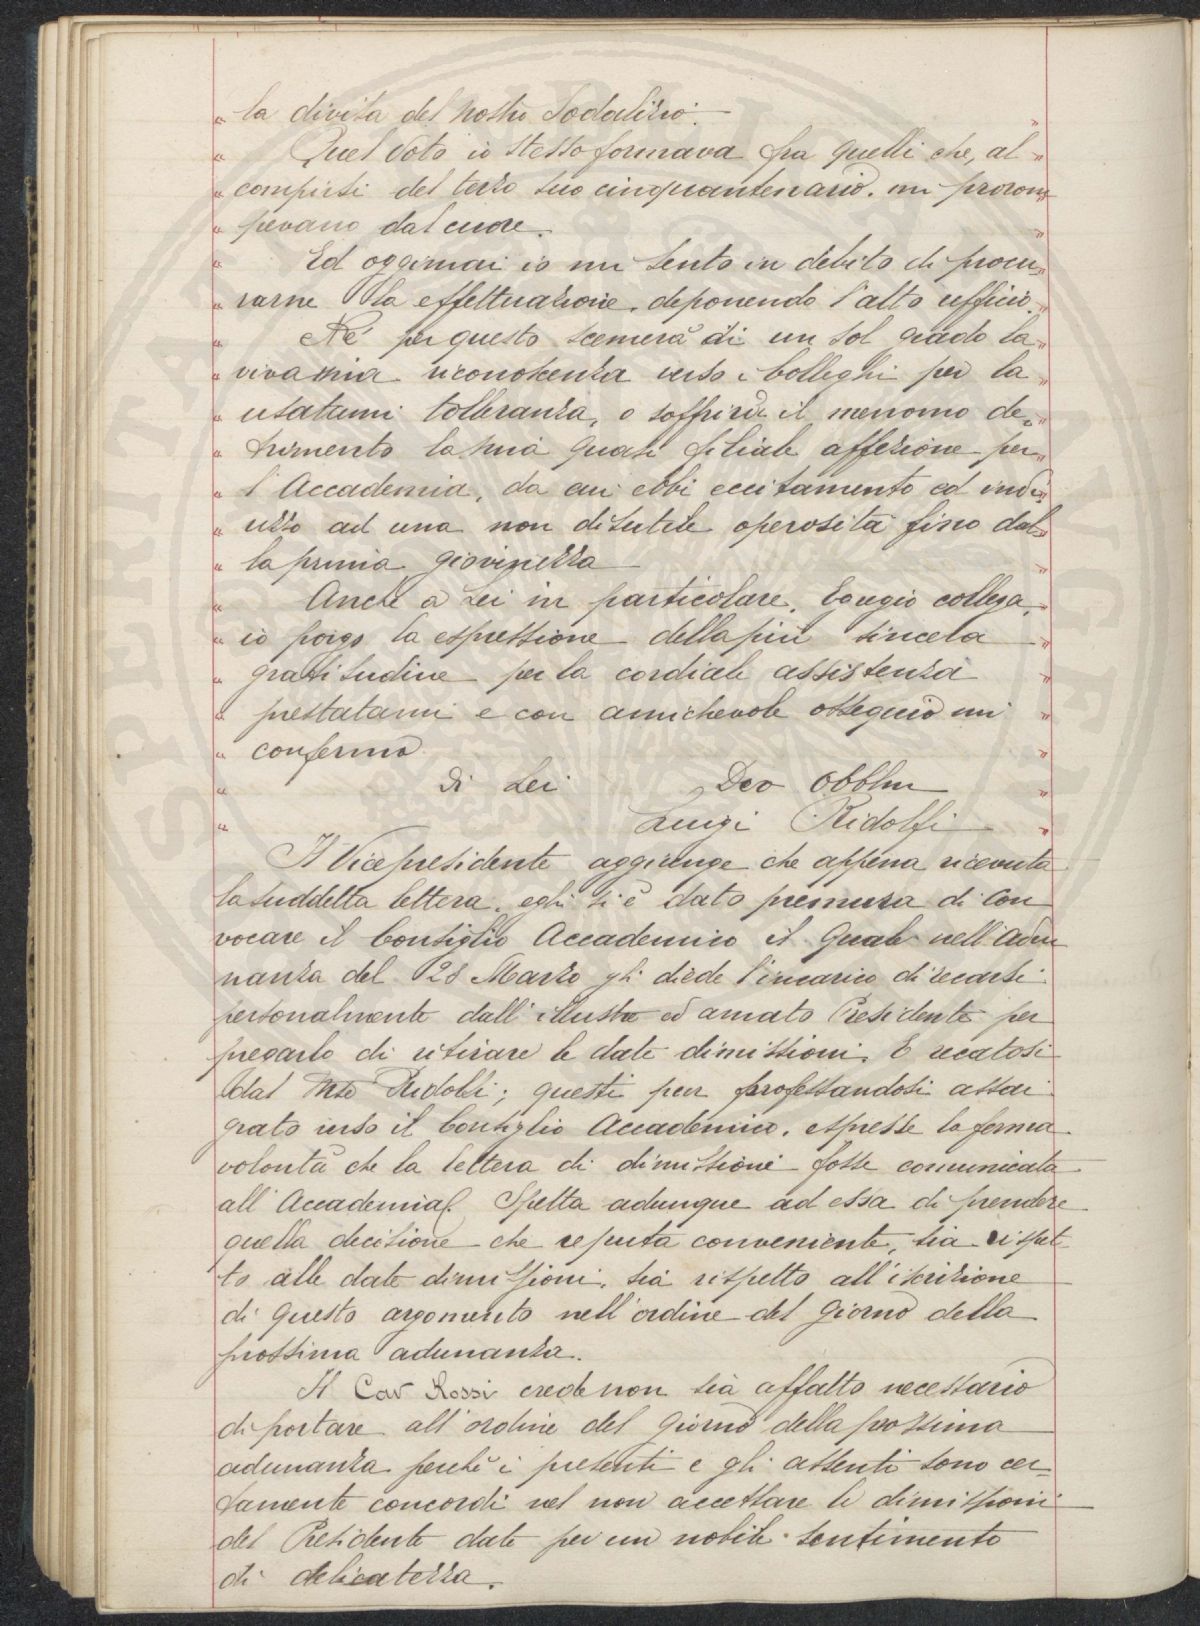 " la divisa del nostro Sodalizio. "
" Quel voto io stesso formava fra quelli che, al "
" compiersi del terzo suo cinquantenario, mi prorom "
" pevano dal cuore.
" Ed oggimai io mi sento in debito di procu- "
" rarne la effettuazione, deponendo l'alto ufficio. "
" Nè per questo scemerà di un sol grado la "
" viva mia riconoscenza verso i Colleghi per la "
" usatami tolleranza, o soffrirà il menomo de- "
" trimento la mia quasi filiale affezione per "
" l'Accademia, da cui ebbi eccitamento ed indi "
" rizzo ad una non disutile operosità fino dal "
" la prima giovinezza "
" Anche a Lei in particolare, Egregio collega, "
" io porgo la espressione della più sincera "
" gratitudine per la cordiale assistenza "
" prestatami e con amichevole ossequio mi "
" confermo "
" di Lei Dev Obblmo "
" Luigi Ridolfi "
Il Vicepresidente aggiunge che appena ricevuta
la suddetta lettera, egli si è dato premura di con
vocare il Consiglio Accademico il quale nell'adu
nanza del 28 Marzo gli diede l'incarico di recarsi
personalmente dall'illustre ed amato Presidente per
pregarlo di ritirare le date dimissioni. E recatosi
dal Mse Ridolfi; questi pur professandosi assai
grato verso il Consiglio Accademico, espresse la ferma
volontà che la lettera di dimissione fosse comunicata
all'Accademia. Spetta adunque ad essa di prendere
quella decisione che reputa conveniente, sia rispet-
to alle date dimissioni, sia rispetto all'iscrizione
di questo argomento nell'ordine del giorno della
prossima adunanza.
Il Cav Rossi crede non sia affatto necessario
di portare all'ordine del giorno della prossima
adunanza perchè i presenti e gli assenti sono cer-
tamente concordi nel non accettare le dimissioni
del Presidente date per un nobile sentimento
di delicatezza.